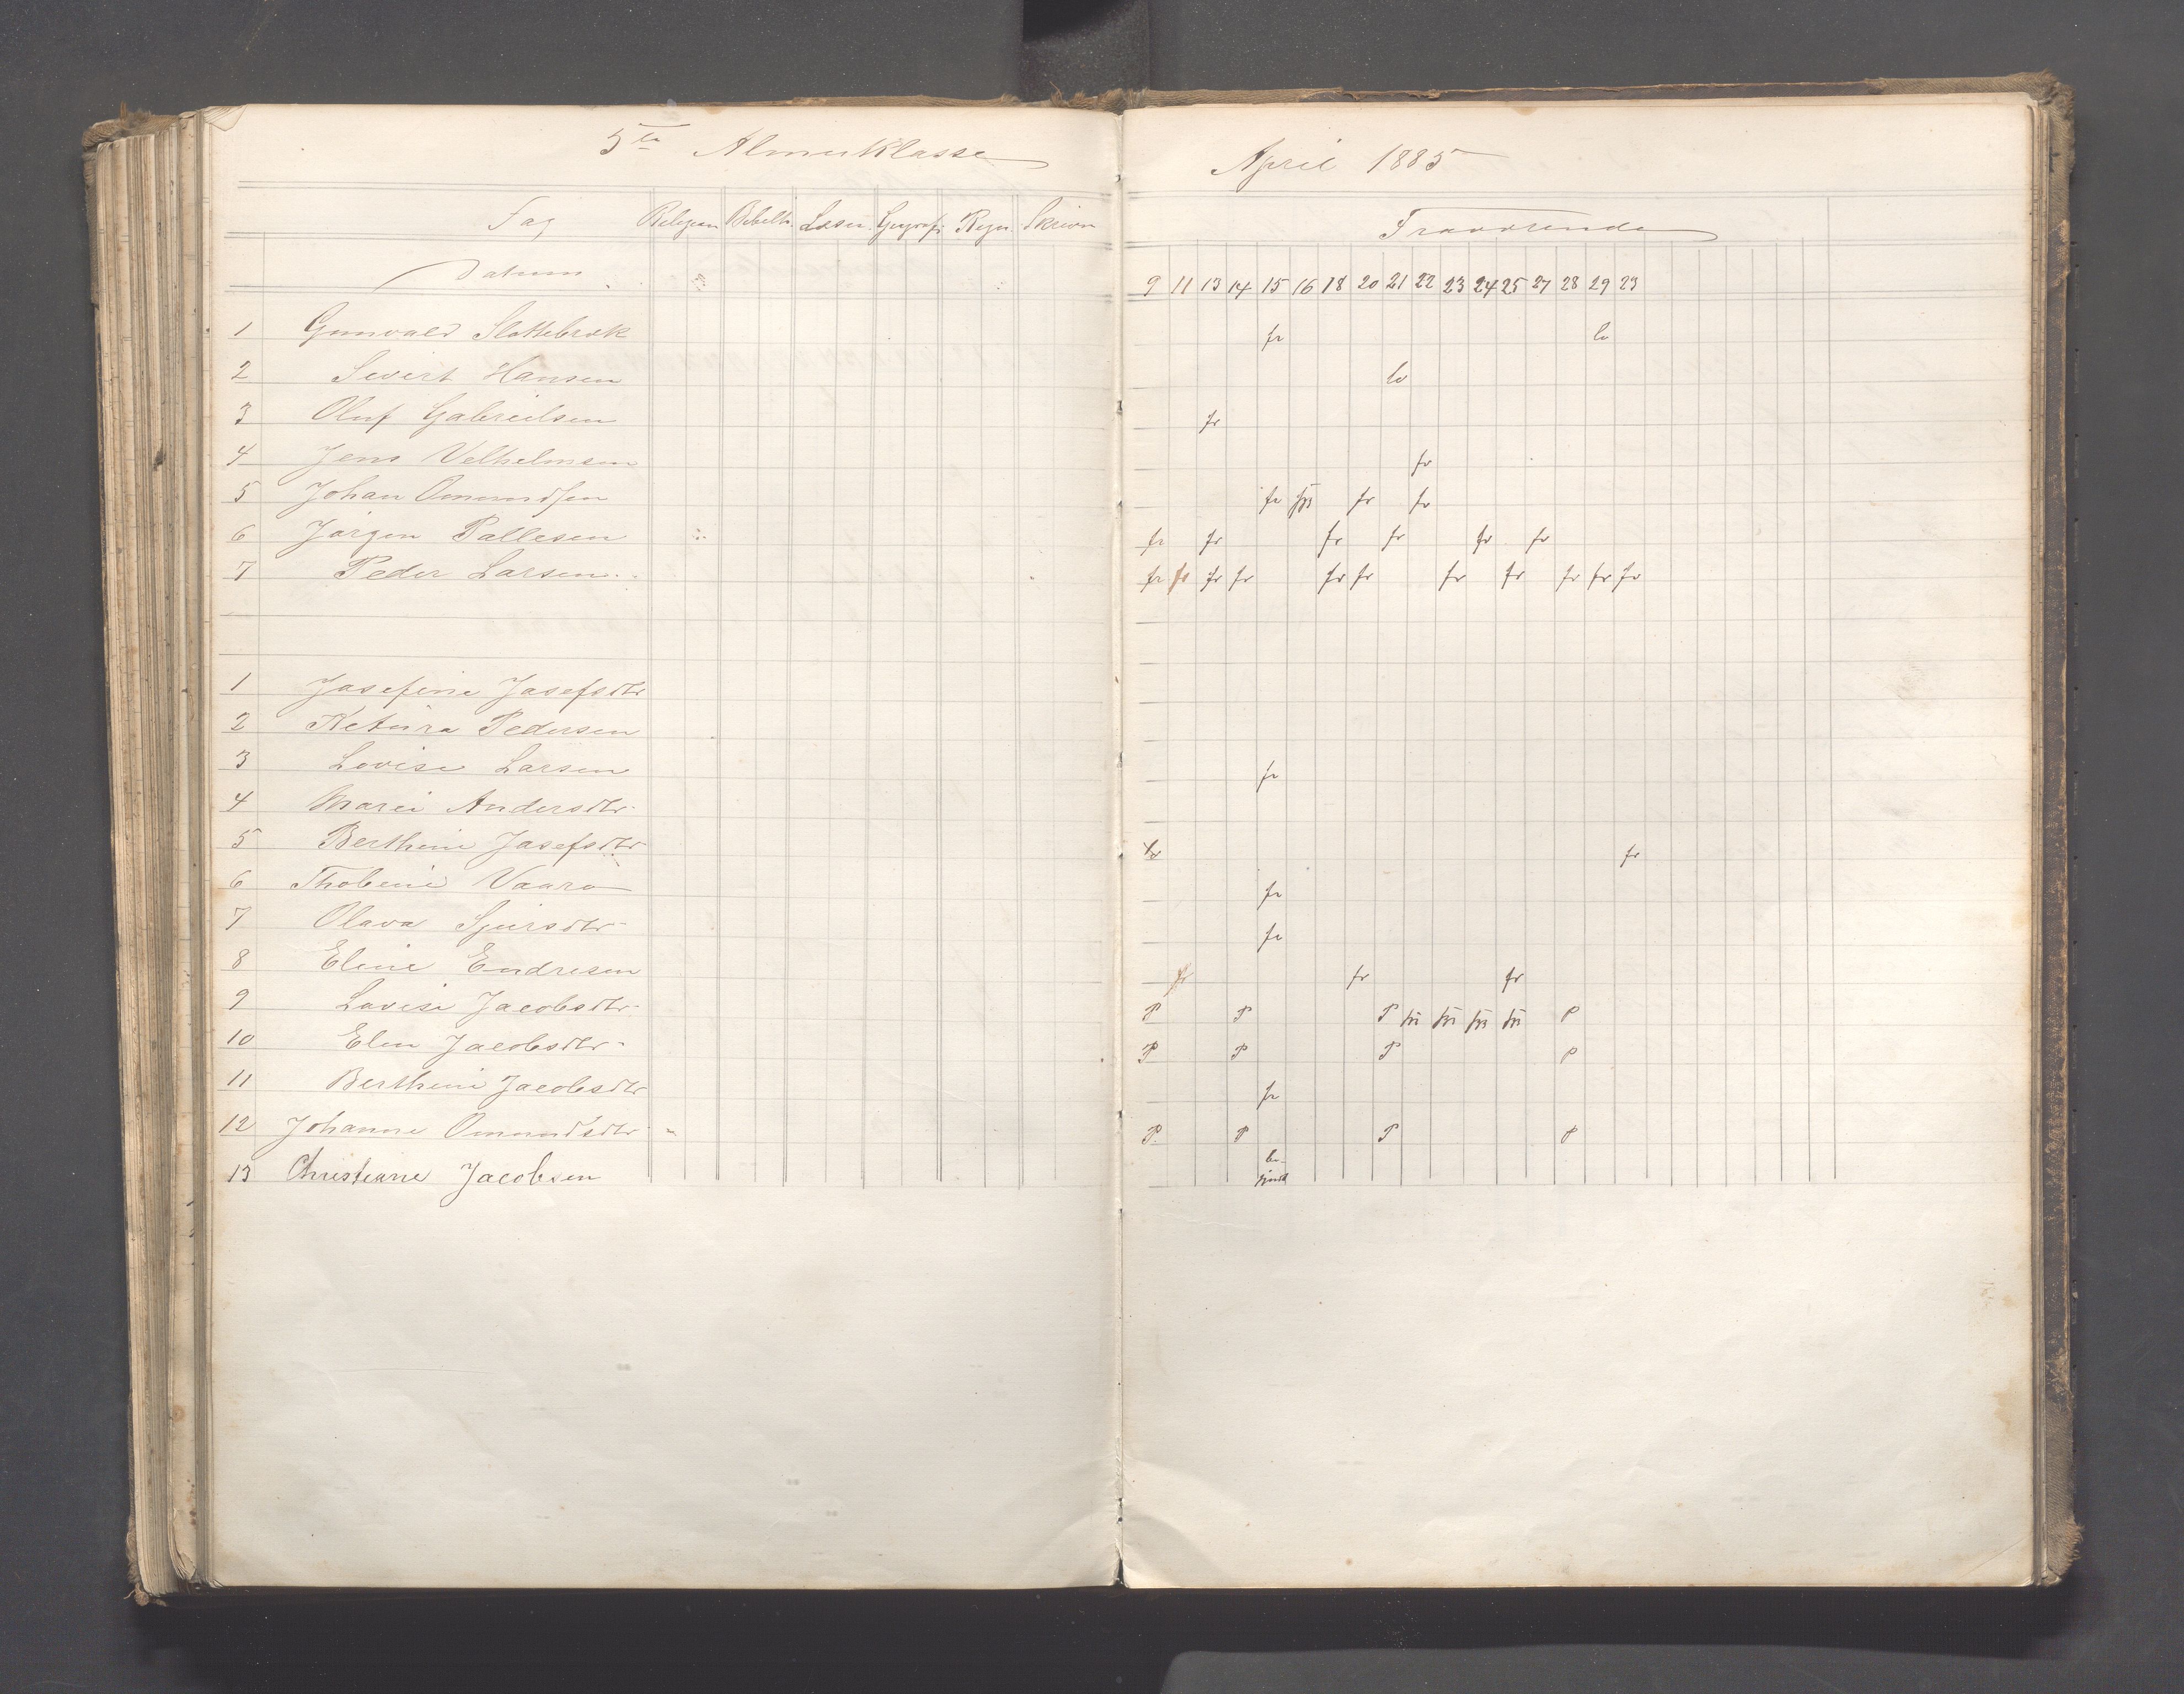 5te Almueklasse
April 1885
Fag Religion Bibelh. Læsen. Geografi. Regn. Skrivn
Fraværende
Datum
9 11 13 14 15 16 18 20 21 22 23 24 25 27 28 29 23
1 Gunvald Slottebrøk fr lo
2 Sivert Hansen lo
3 Oluf Gabrielsen fr
4 Jens Velhelmsen fr
5 Johan Omundsen fr fr fr
6 Jørgen Pallesen fr fr fr fr fr fr
7 Peder Larsen fr fr fr fr fr fr fr fr fr fr fr
1 Josefine Josefsdtr
2 Ketura Pedersen
3 Lovise Larsen fr
4 Marei Andersdtr
5 Berthine Josefsdtr fr fr
6 Thobine Vaara fr
7 Olava Sjursdtr fr
8 Eline Endresen fr fr fr
9 Lovise Jacobsdtr P P P P
10 Elen Jacobsdtr P P P P
11 Berthine Jacobsdtr fr
12 Johanne Omundsdtr P P P P
13 Christiane Jacobsen